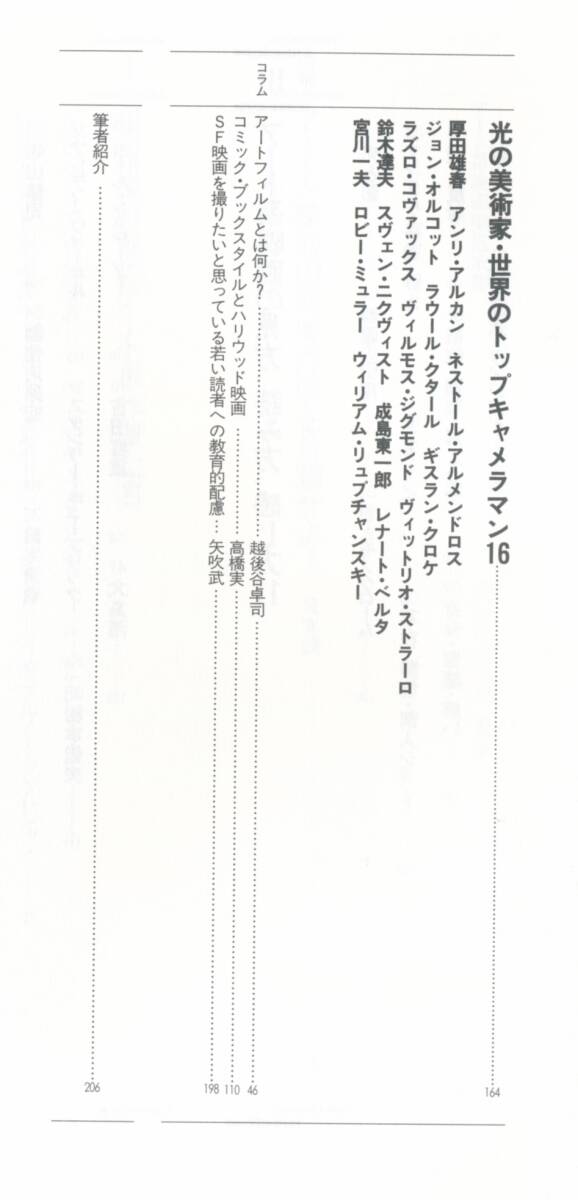 光の美術家・世界のトップキャメラマン16……164
厚田雄春　アンリ・アルカン　ネストール・アルメンドロス
ジョン・オルコット　ラウール・クタール　ギスラン・クロケ
ラズロ・コヴァックス　ヴィルモス・ジグモンド　ヴィットリオ・ストラーロ
鈴木達夫　スヴェン・ニクヴィスト　成島東一郎　レナート・ベルタ
宮川一夫　ロビー・ミュラー　ウィリアム・リュプチャンスキー
コラム
アートフィルムとは何か?……越後谷卓司……46
コミック・ブックスタイルとハリウッド映画……高橋実……110
SF映画を撮りたいと思っている若い読者への教育的配慮…矢吹武……198
筆者紹介……206